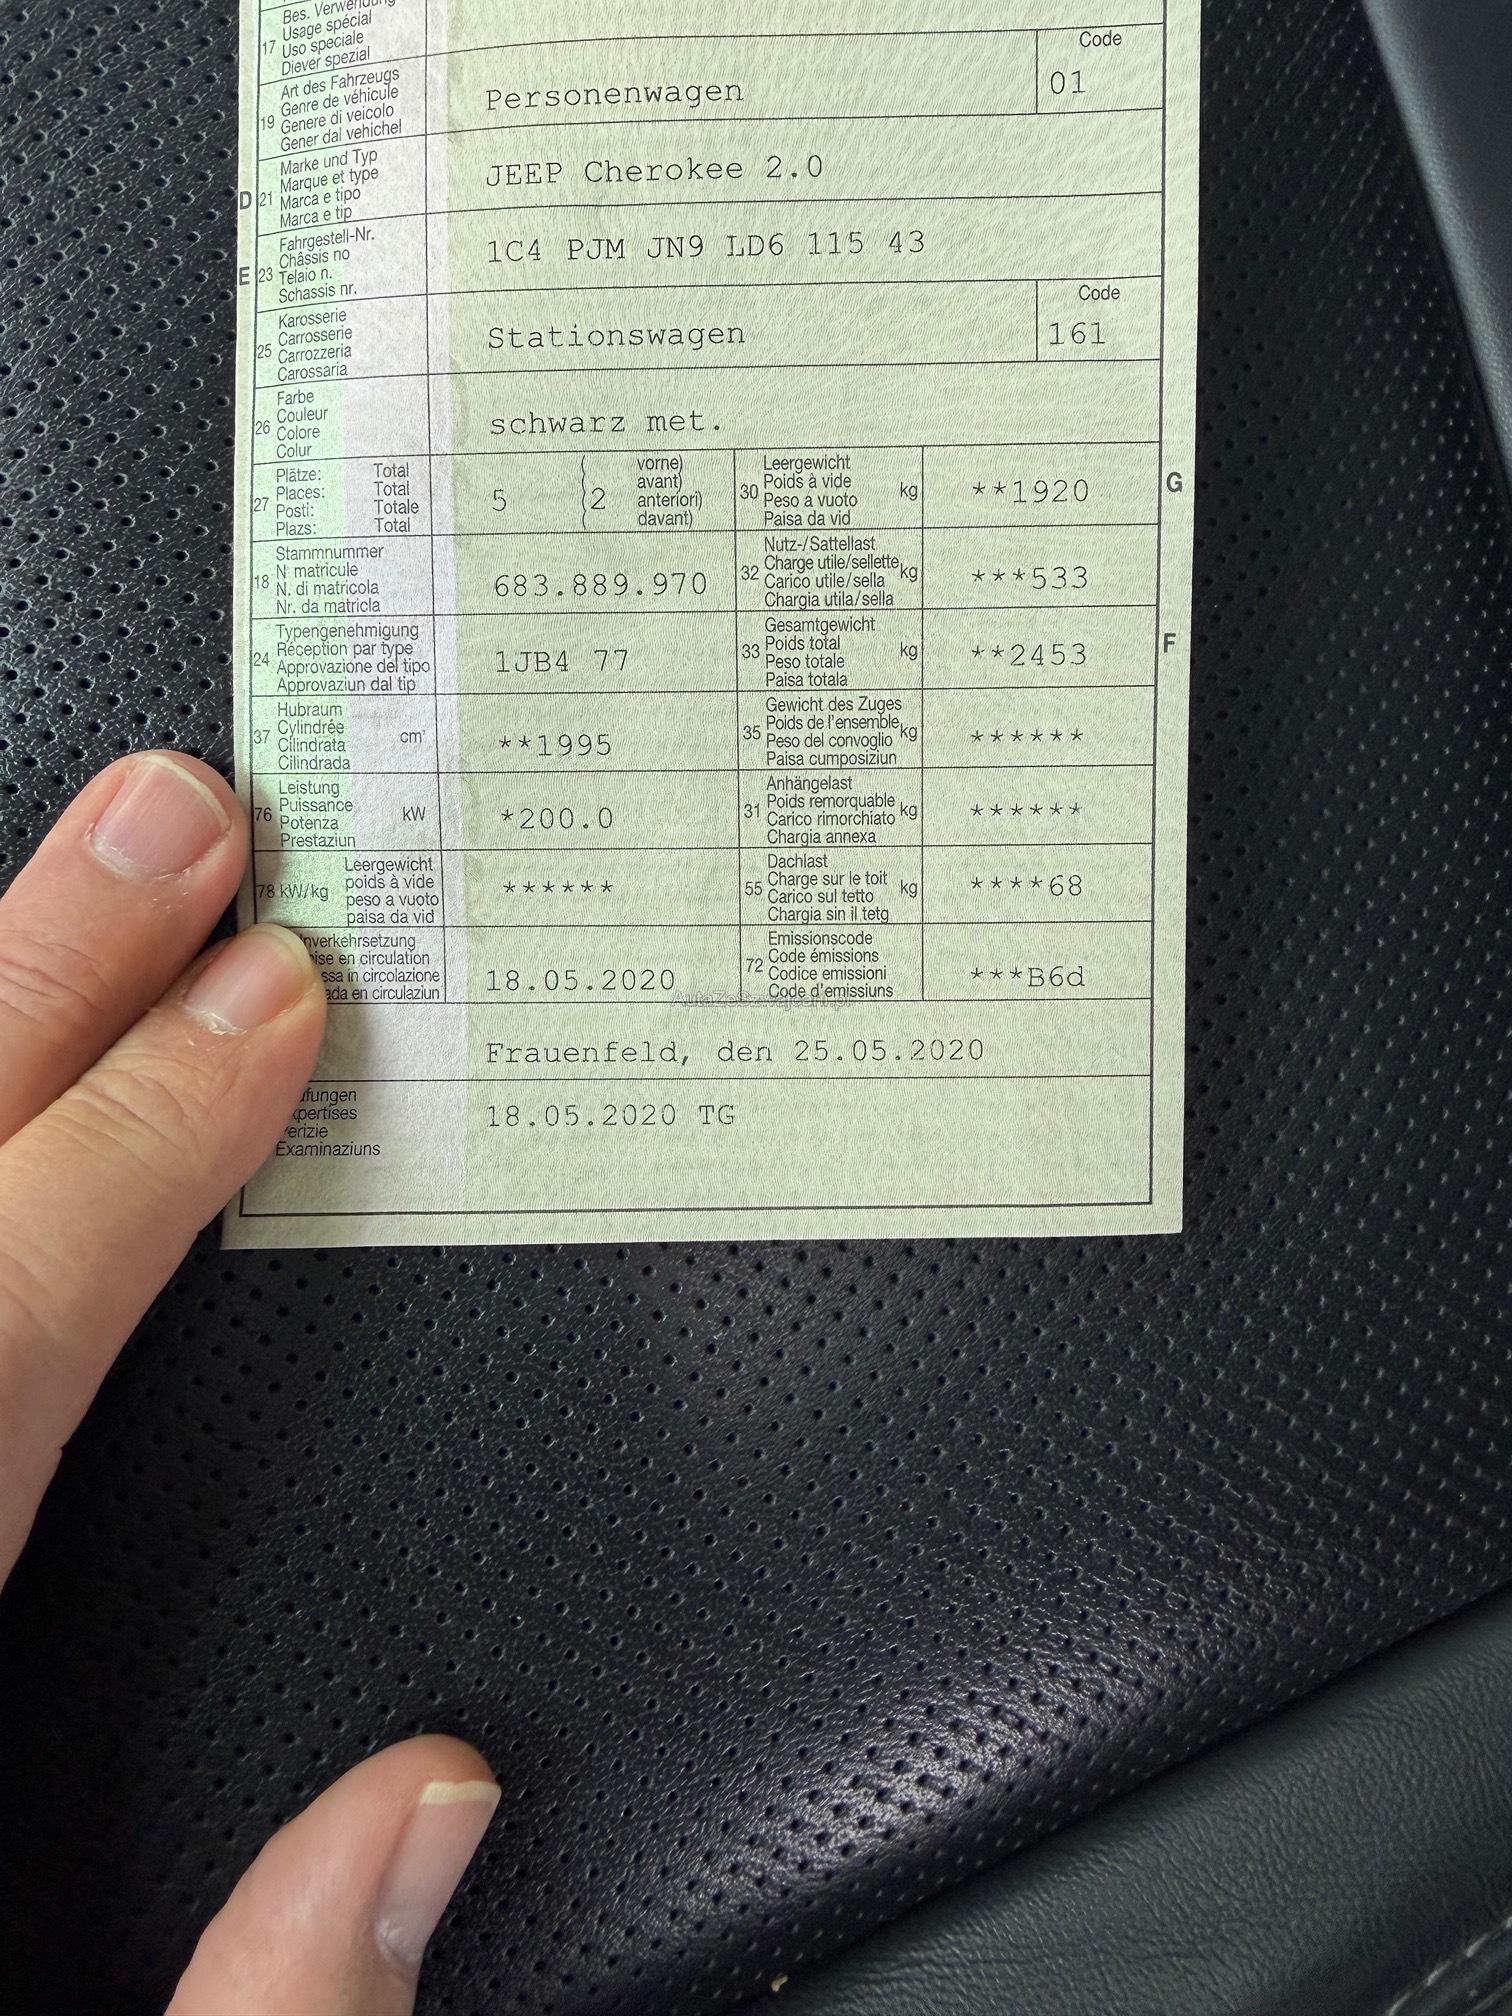 Bes. Verwendung
17 Usage spécial
Uso speciale
Diever spezial
19 Art des Fahrzeugs
Genre de véhicule
Genere di veicolo
Gener dal vehichel
Personenwagen
Code
01
D 21 Marke und Typ
Marque et type
Marca e tipo
Marca e tip
JEEP Cherokee 2.0
E 23 Fahrgestell-Nr.
Châssis no
Telaio n.
Schassis nr.
1C4 PJM JN9 LD6 115 43
25 Karosserie
Carrosserie
Carrozzeria
Carossaria
Stationswagen
Code
161
26 Farbe
Couleur
Colore
Colur
schwarz met.
27 Plätze: Total
Places: Total
Posti: Totale
Plazs: Total
5 ( 2 vorne)
avant)
anteriori)
davant)
30 Leergewicht
Poids à vide
Peso a vuoto
Paisa da vid
kg
**1920
G
18 Stammnummer
N matricule
N. di matricola
Nr. da matricla
683.889.970
32 Nutz-/Sattellast
Charge utile/sellette
Carico utile/sella
Chargia utila/sella
kg
***533
24 Typengenehmigung
Réception par type
Approvazione del tipo
Approvaziun dal tip
1JB4 77
33 Gesamtgewicht
Poids total
Peso totale
Paisa totala
kg
**2453
F
37 Hubraum
Cylindrée
Cilindrata
Cilindrada
cm³
**1995
35 Gewicht des Zuges
Poids de l'ensemble
Peso del convoglio
Paisa cumposiziun
kg
******
76 Leistung
Puissance
Potenza
Prestaziun
kW
*200.0
31 Anhängelast
Poids remorquable
Carico rimorchiato
Chargia annexa
kg
******
78 kW/kg Leergewicht
poids à vide
peso a vuoto
paisa da vid
******
55 Dachlast
Charge sur le toit
Carico sul tetto
Chargia sin il tetg
kg
****68
nverkehrsetzung
ise en circulation
ssa in circolazione
ada en circulaziun
18.05.2020
72 Emissionscode
Code émissions
Codice emissioni
Code d'emissiuns
***B6d
Frauenfeld, den 25.05.2020
üfungen
xpertises
erizie
Examinaziuns
18.05.2020 TG